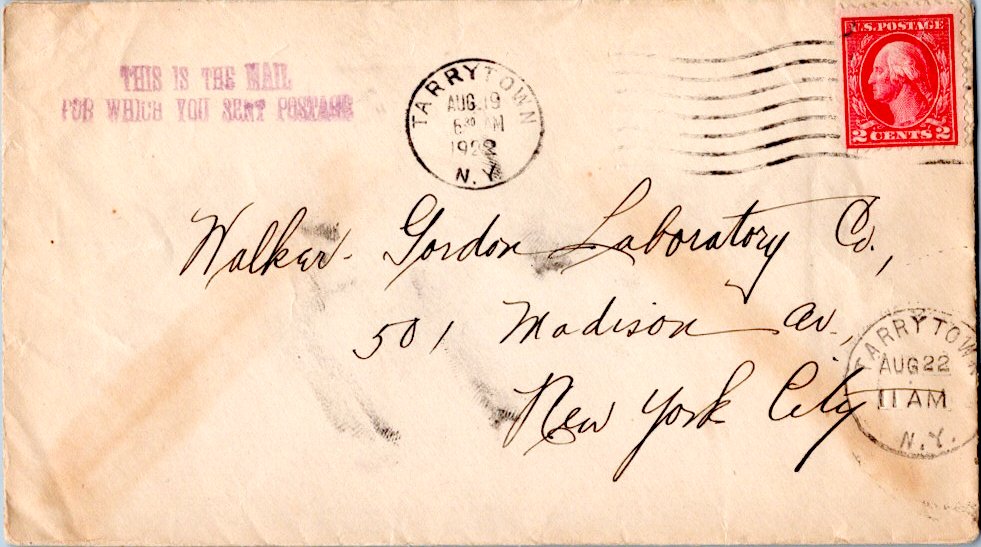 THIS IS THE MAIL
FOR WHICH YOU SENT POSTAGE
TARRYTOWN
AUG. 19
6 30 AM
1922
N.Y.
U.S. POSTAGE
2 CENTS 2
Walker-Gordon Laboratory Co.,
501 Madison Av.,
New York City
TARRYTOWN
AUG 22
11 AM
N.Y.